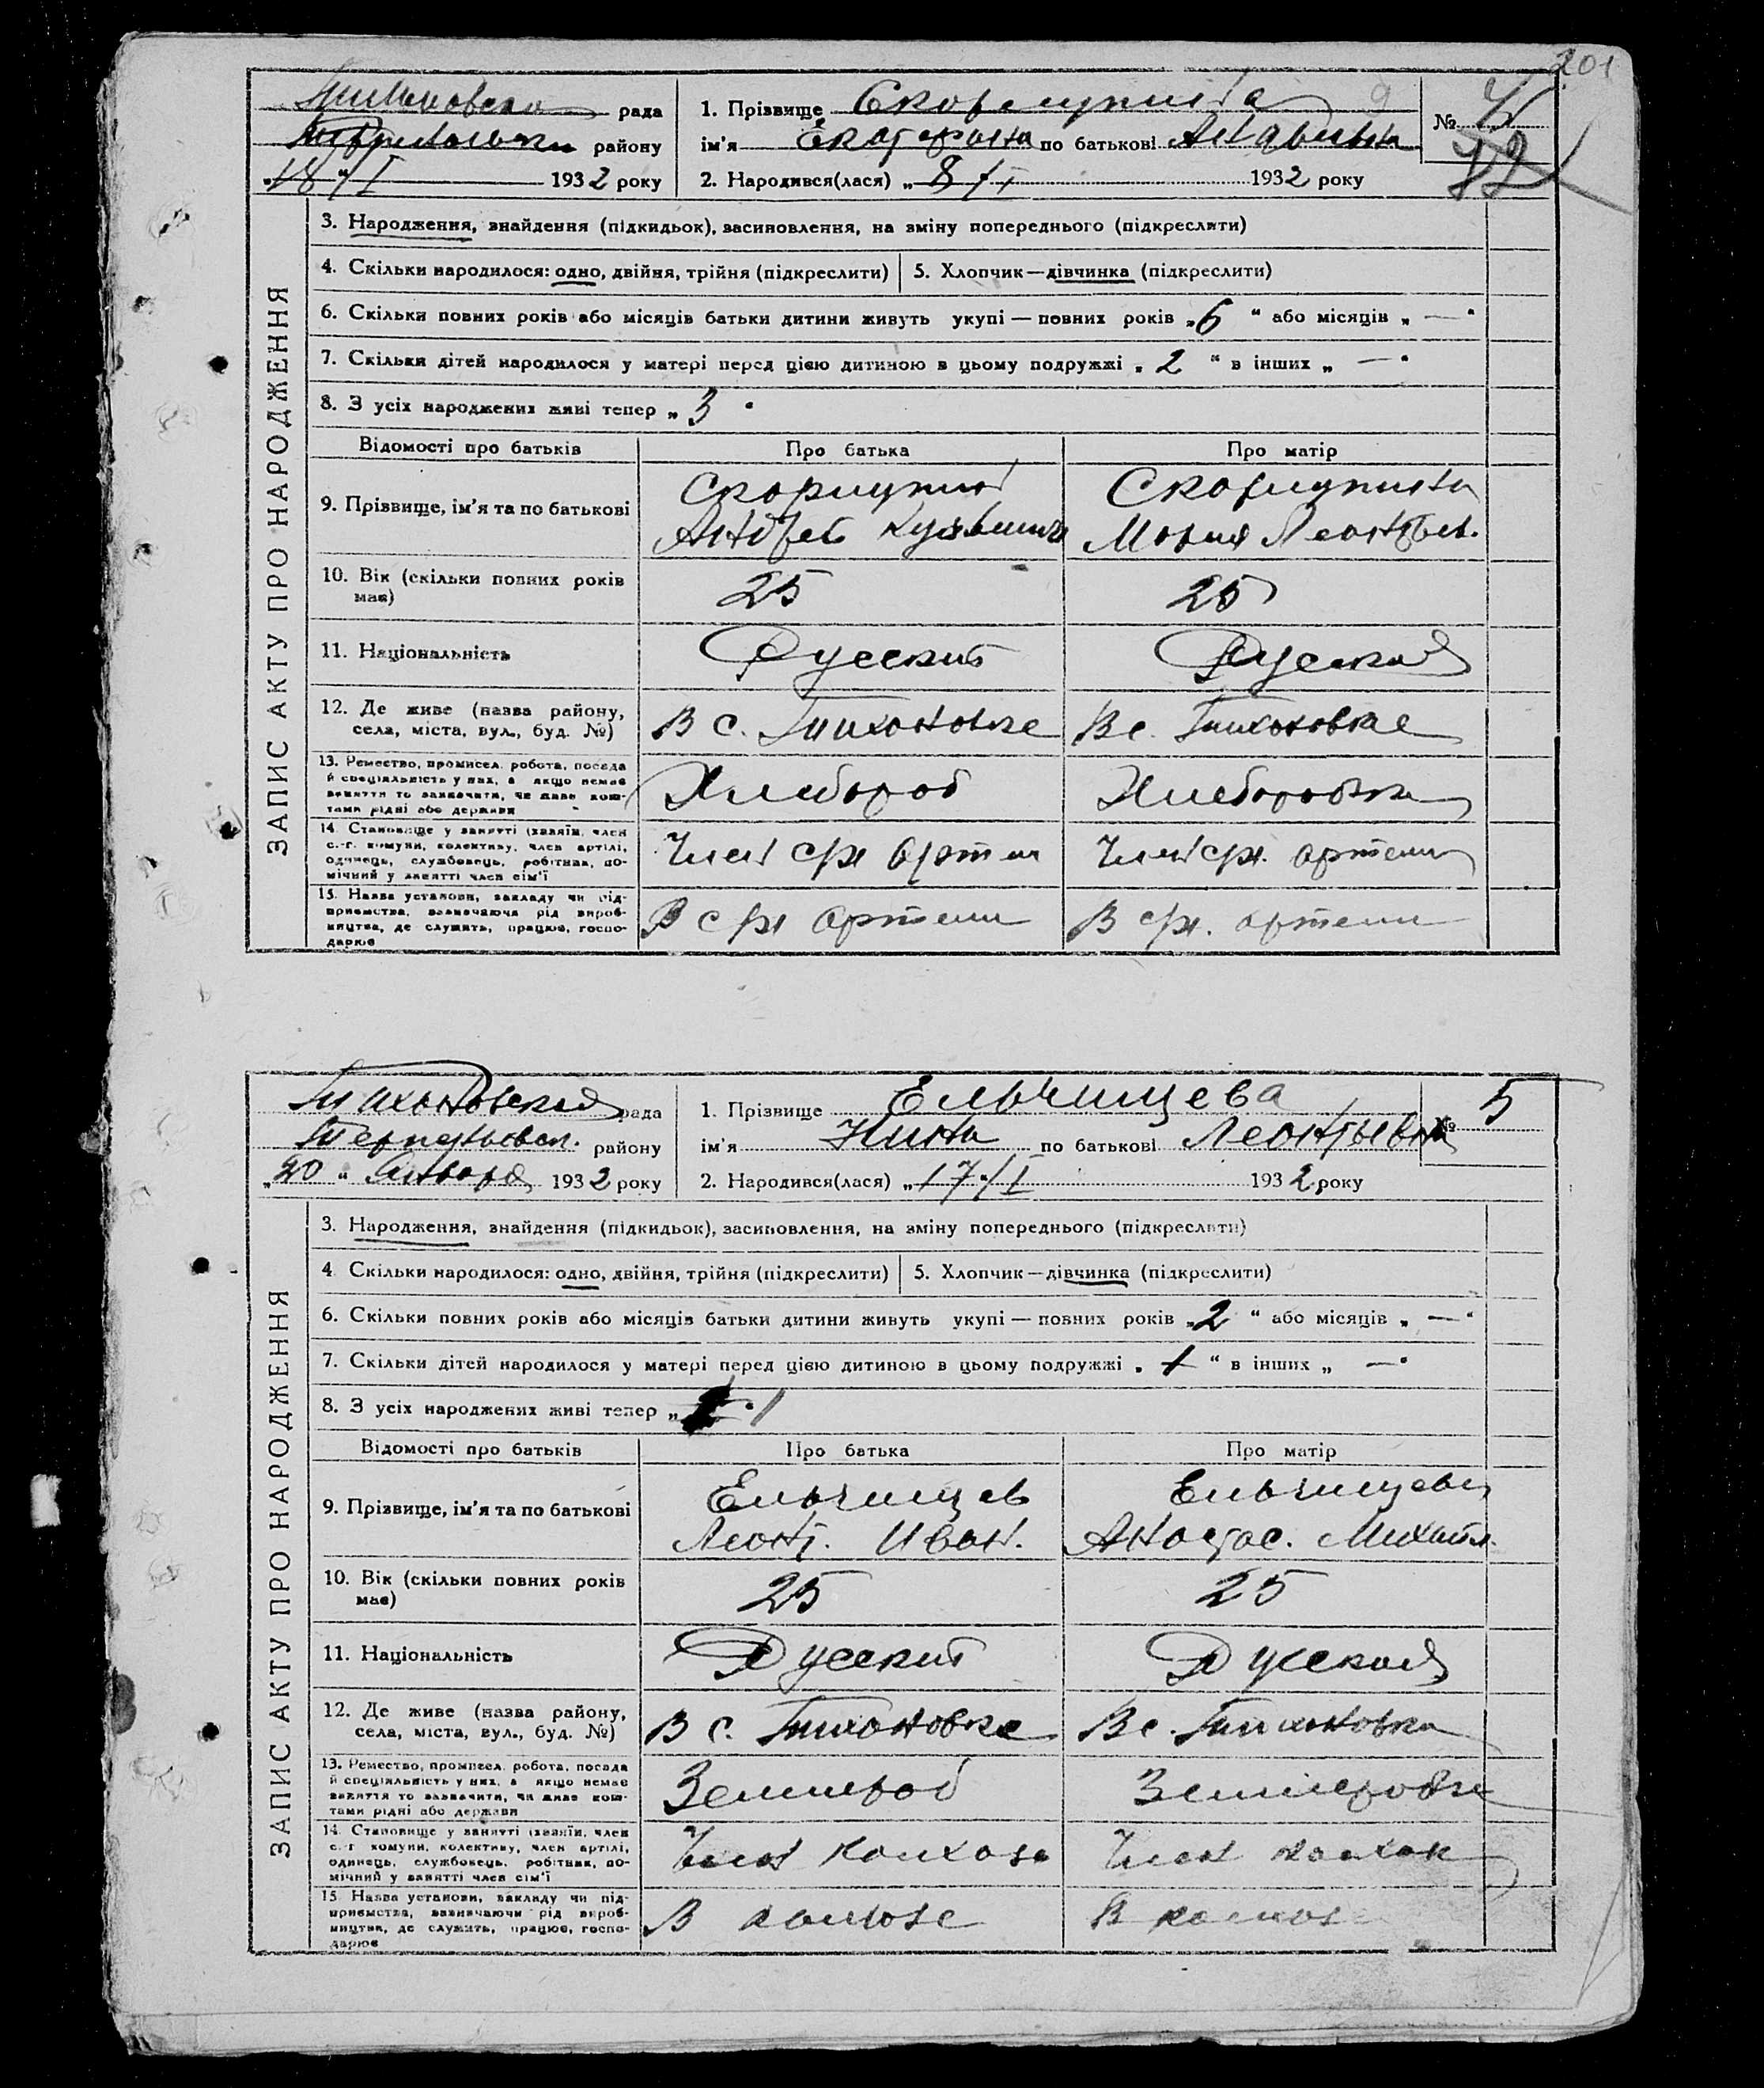 201
рада
1. Прізвище
№ 4
району
ім'я Екатерина по батькові
12
„18“/I 1932 року
2. Народився(лася) „8“/I 1932 року
ЗАПИС АКТУ ПРО НАРОДЖЕННЯ
3. Народження, знайдення (підкидьок), засиновлення, на зміну попереднього (підкреслити)
4. Скільки народилося: одно, двійня, трійня (підкреслити) 5. Хлопчик—дівчинка (підкреслити)
6. Скільки повних років або місяців батьки дитини живуть укупі — повних років „6“ або місяців „—“
7. Скільки дітей народилося у матері перед цією дитиною в цьому подружжі „2“ в інших „—“
8. З усіх народжених живі тепер „3“
Відомості про батьків Про батька Про матір
9. Прізвище, ім'я та по батькові
Андрей Кузьмич Мария Леонтьев.
10. Вік (скільки повних років має) 25 25
11. Національність Русский Русская
12. Де живе (назва району, села, міста, вул., буд. №) В с. Тихоновке В с. Тихоновке
13. Ремество, промисел, робота, посада й спеціяльність у них, а якщо немає заняття то зазначити, чи живе коштами рідні або держави Хлебороб Хлеборобка
14. Становище у занятті (хазяїн, член с.-г. комуни, колективу, член артілі, одинець, службовець, робітник, помічний у занятті член сім'ї Член с/х артели Член с/х. артели
15. Назва установи, закладу чи підприємства, зазначаючи рід виробництва, де служить, працює, господарює В с/х артели В с/х. артели
Тихоновская рада
1. Прізвище Ельчищева
№ 5
району
ім'я Нина по батькові Леонтьевна
„20“ Января 1932 року
2. Народився(лася) „17“/I 1932 року
ЗАПИС АКТУ ПРО НАРОДЖЕННЯ
3. Народження, знайдення (підкидьок), засиновлення, на зміну попереднього (підкреслити)
4. Скільки народилося: одно, двійня, трійня (підкреслити) 5. Хлопчик—дівчинка (підкреслити)
6. Скільки повних років або місяців батьки дитини живуть укупі — повних років „2“ або місяців „—“
7. Скільки дітей народилося у матері перед цією дитиною в цьому подружжі „1“ в інших „—“
8. З усіх народжених живі тепер „ “ 1
Відомості про батьків Про батька Про матір
9. Прізвище, ім'я та по батькові Ельчищев Ельчищева
Леонт. Иван. Анастас. Михайл.
10. Вік (скільки повних років має) 25 25
11. Національність Русский Русская
12. Де живе (назва району, села, міста, вул., буд. №) В с. Тихоновке В с. Тихоновка
13. Ремество, промисел, робота, посада й спеціяльність у них, а якщо немає заняття то зазначити, чи живе коштами рідні або держави
14. Становище у занятті (хазяїн, член с.-г. комуни, колективу, член артілі, одинець, службовець, робітник, помічний у занятті член сім'ї Член колхоза Член
15. Назва установи, закладу чи підприємства, зазначаючи рід виробництва, де служить, працює, господарює В колхозе В